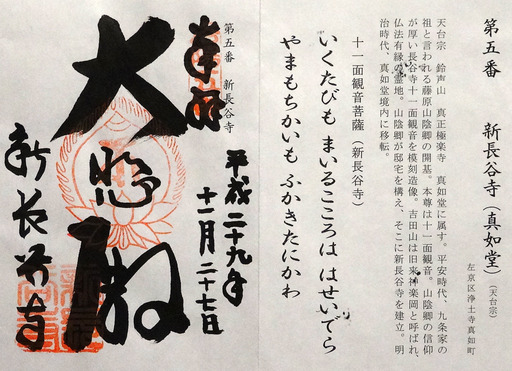 第五番　新長谷寺（真如堂）（天台宗）
左京区浄土寺真如町
天台宗　鈴声山　真正極楽寺　真如堂に属す。平安時代、九条家の
祖と言われる藤原山陰卿の開基。本尊は十一面観音。山陰卿の信仰
が厚い長谷寺十一面観音を模刻造像。吉田山は旧来神楽岡と呼ばれ、
仏法有縁の霊地。山陰卿が邸宅を構え、そこに新長谷寺を建立。明
治時代、真如堂境内に移転。
十一面観音菩薩（新長谷寺）
いくたびも　まいるこころは　はせいでら
やまもちかいも　ふかきたにかわ
第五番　新長谷寺
奉拝
平成二十九年
十一月二十七日
大悲殿
新長谷寺